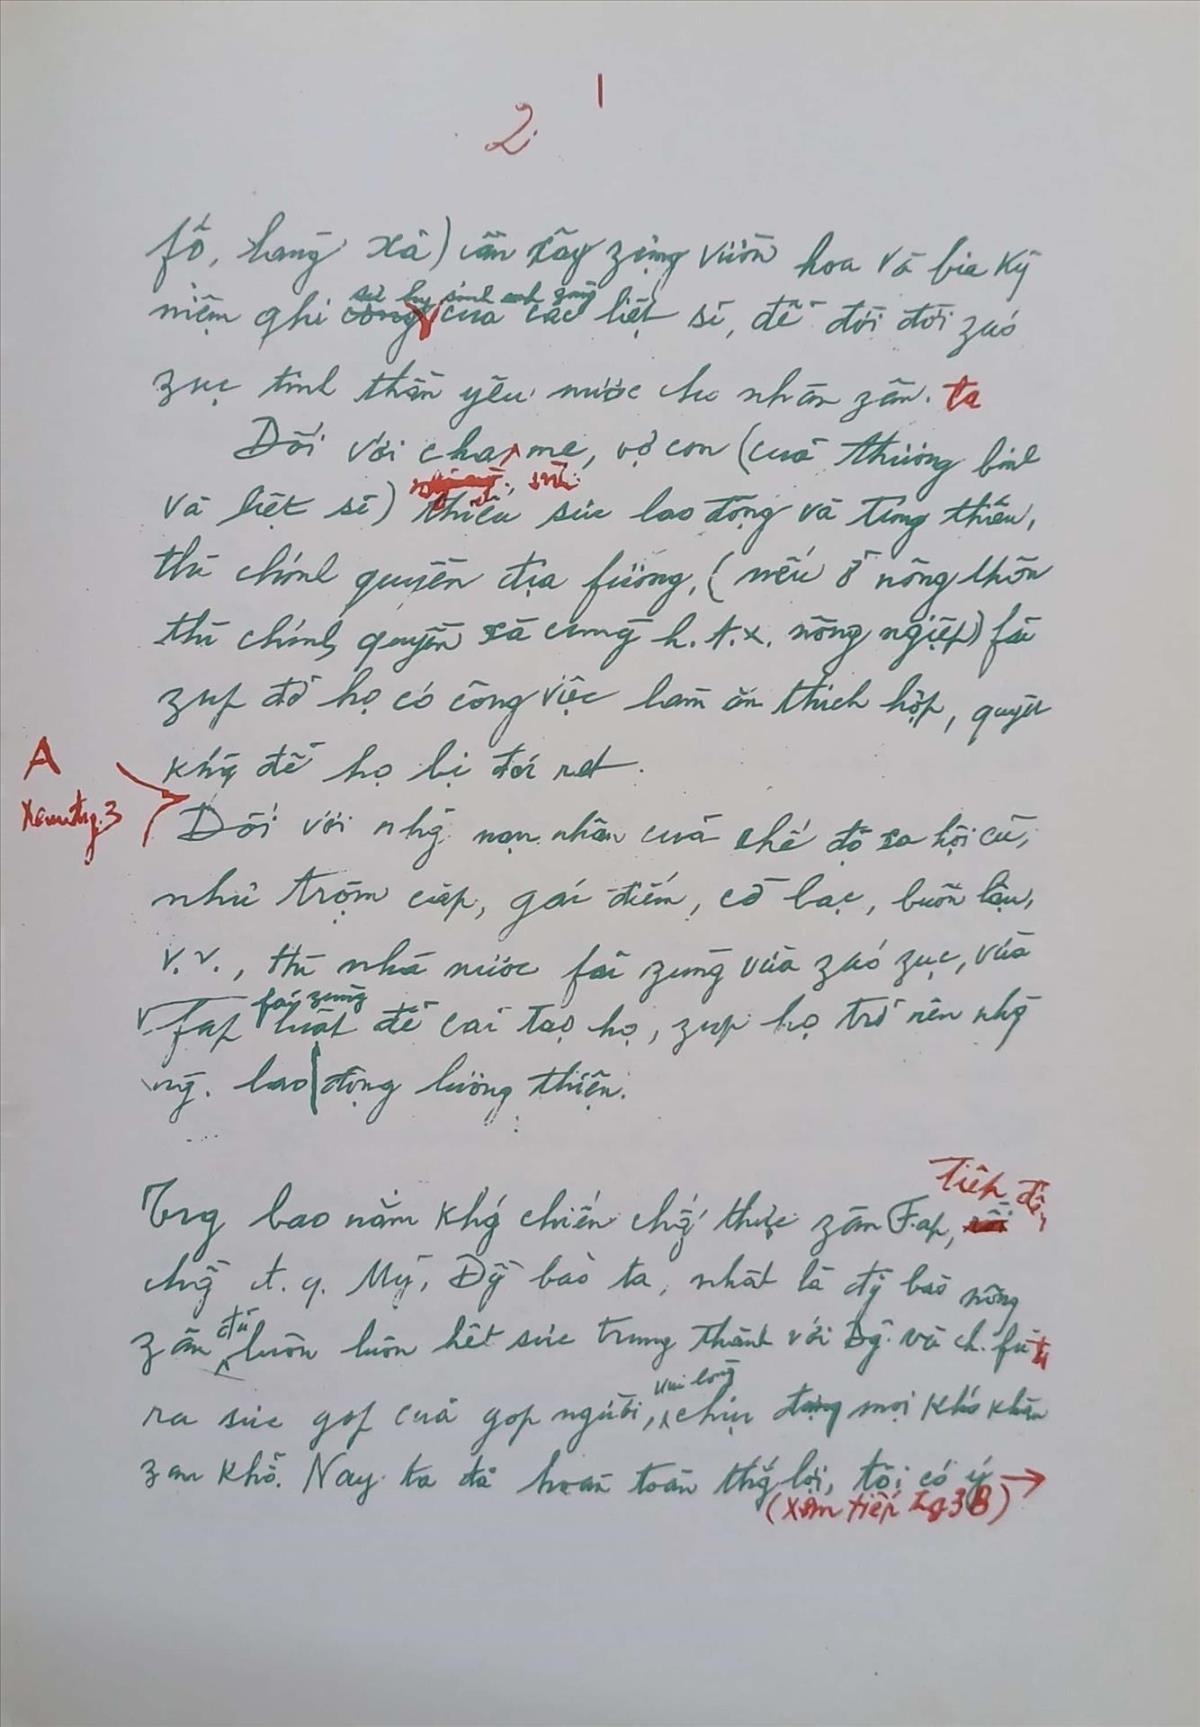 1
2.
fố, làng xã) cần xây zựng vườn hoa và bia kỷ
sự hy sinh anh zũng
niệm ghi công của các liệt sĩ, để đời đời záo
zục tinh thần yêu nước cho nhân zân. ta
Đối với cha mẹ, vợ con (của thương binh
và liệt sĩ) thiếu sức lao động và túng thiếu,
thì chính quyền địa fương, (nếu ở nông thôn
thì chính quyền xã cùng h.t.x. nông ngiệp) fải
zúp đỡ họ có công việc làm ăn thích hợp, quyết
A
khg để họ bị đói rét.
Xem trg. 3
Đối với nhg nạn nhân của chế độ xã hội cũ,
như trộm cắp, gái điếm, cờ bạc, buôn lậu,
v.v., thì nhà nước fải zùng vừa záo zục, vừa
fải zùng
fáp luật để cải tạo họ, zúp họ trở nên nhg
ng. lao động lương thiện.
Tiếp đến
Trg bao năm khg chiến chg thực zân Fáp,
chg đ.q. Mỹ, Đg bào ta, nhất là đg bào nông
đã
zân luôn luôn hết sức trung thành với Đg. và ch. fủ ta
vui lòng
ra sức góp của góp người, chịu đựng mọi khó khăn
zan khổ. Nay ta đã hoàn toàn thg lợi, tôi có ý →
(Xem tiếp trg 3B)